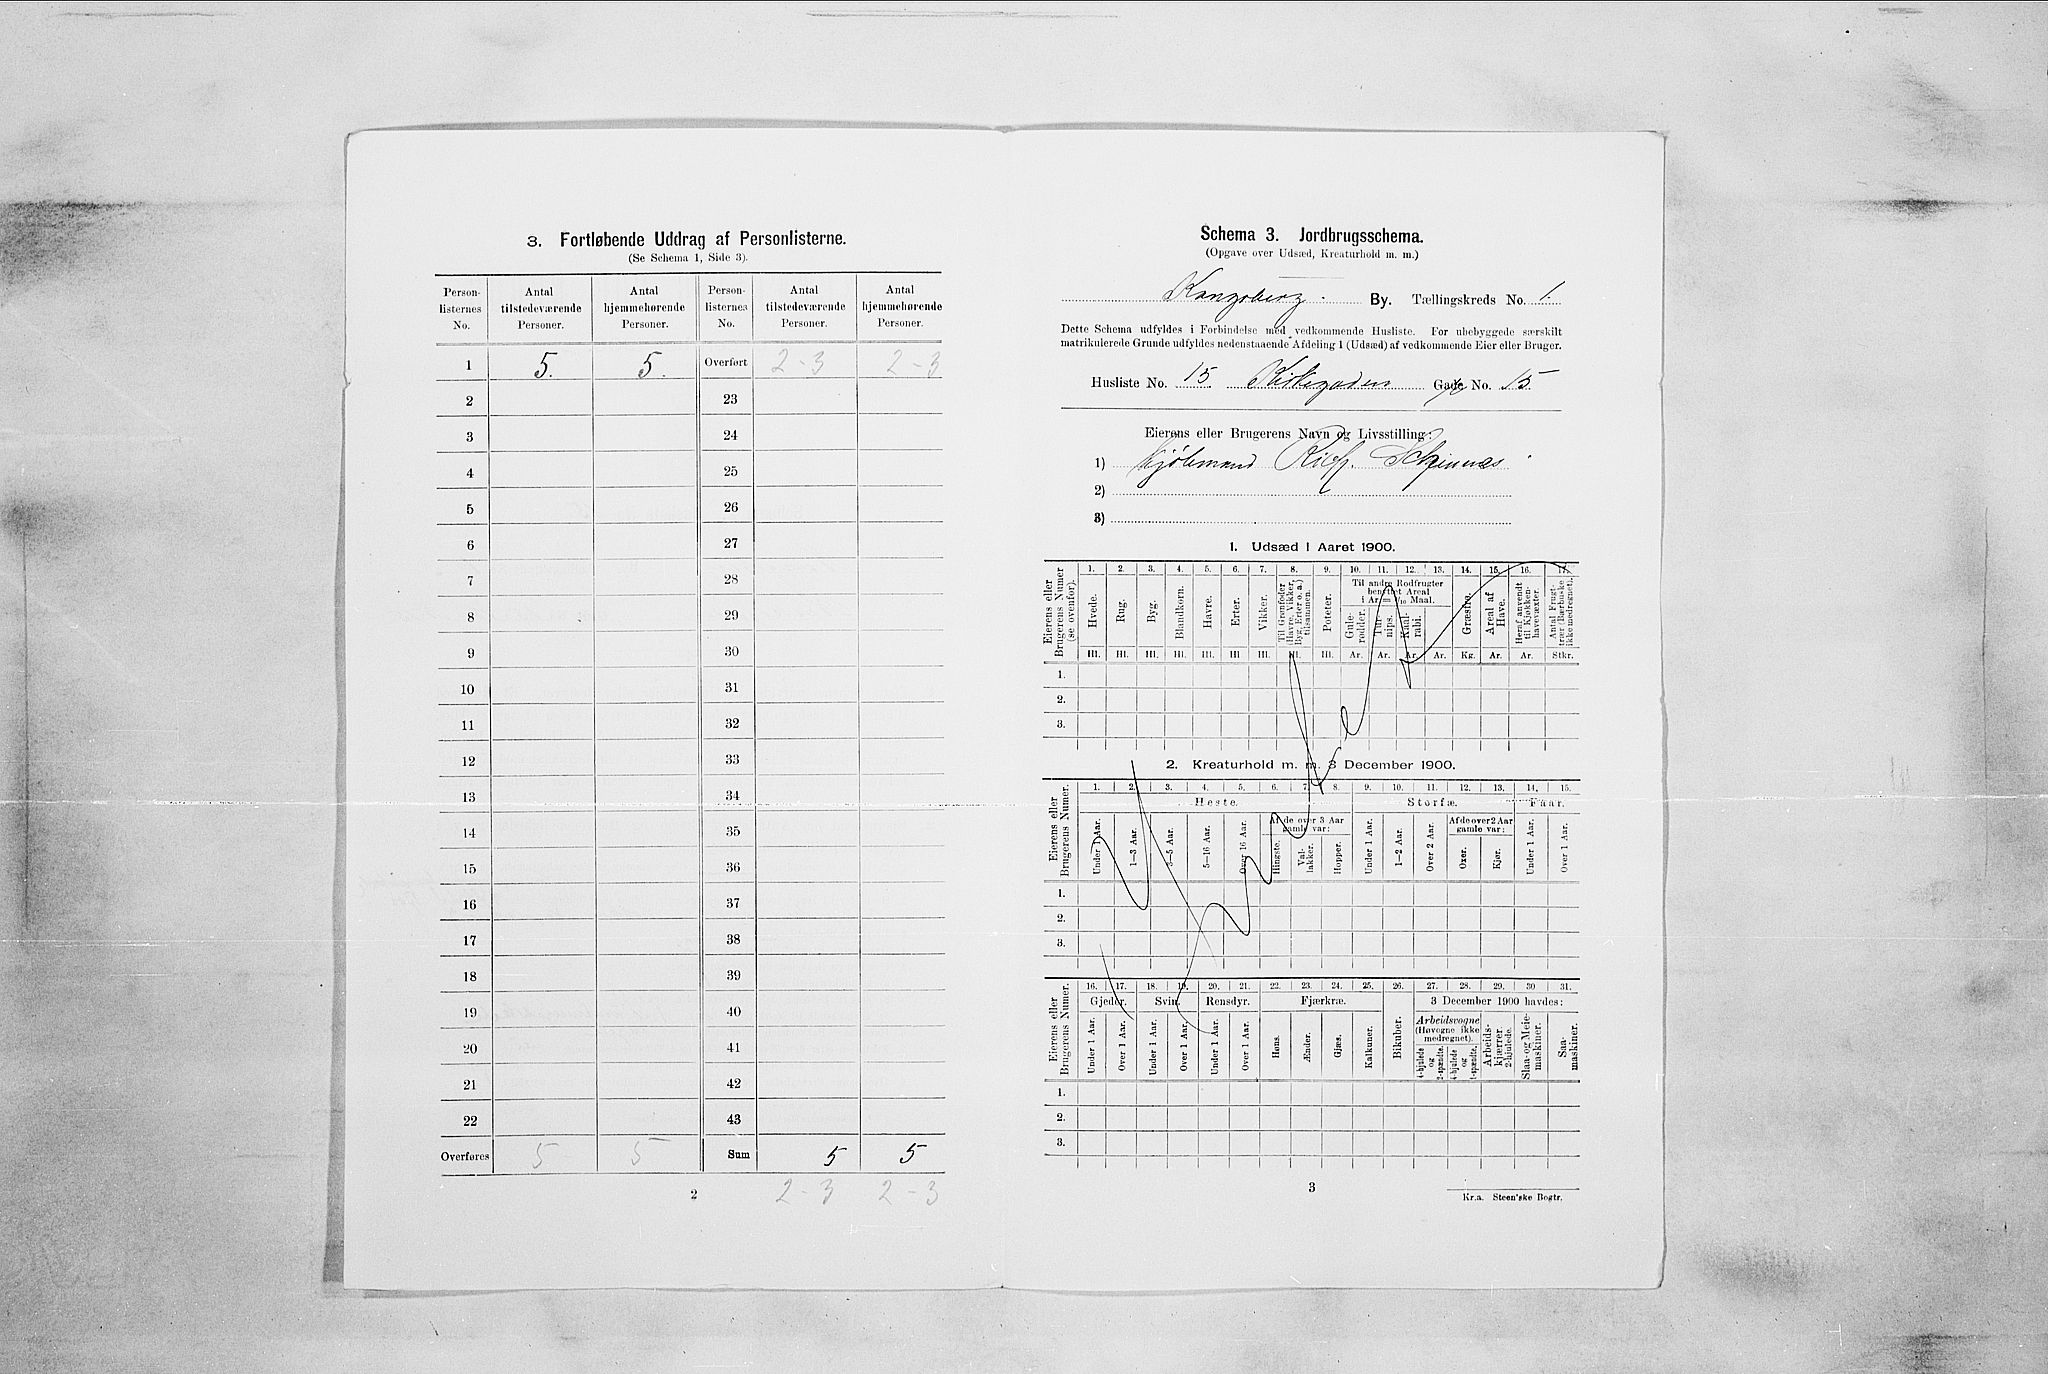 3. Fortløbende Uddrag af Personlisterne.
(Se Schema 1, Side 3).
Person-listernes No. Antal tilstedeværende Personer. Antal hjemmehørende Personer. Person-listernes No. Antal tilstedeværende Personer. Antal hjemmehørende Personer.
1 5. 5. Overført 2-3 2-3
2 23
3 24
4 25
5 26
6 27
7 28
8 29
9 30
10 31
11 32
12 33
13 34
14 35
15 36
16 37
17 38
18 39
19 40
20 41
21 42
22 43
Overføres 5 5 Sum 5 5
2-3 2-3
2
Schema 3. Jordbrugsschema.
(Opgave over Udsæd, Kreaturhold m. m.)
Kongsberg. By. Tællingskreds No. 1.
Dette Schema udfyldes i Forbindelse med vedkommende Husliste. For ubebyggede særskilt
matrikulerede Grunde udfyldes nedenstaaende Afdeling 1 (Udsæd) af vedkommende Eier eller Bruger.
Husliste No. 15 Kirkegaden Gade No. 15
Eierens eller Brugerens Navn og Livsstilling:
1) Kjøbmand Rich.
2)
3)
1. Udsæd i Aaret 1900.
Eierens eller Brugerens Numer (se ovenfor).
1. 2. 3. 4. 5. 6. 7. 8. 9. 10. 11. 12. 13. 14. 15. 16. 17.
Hvede. Rug. Byg. Blandkorn. Havre. Erter. Vikker. Til Grønfoder (Havre, Vikker, Byg, Erter o. a.) tilsammen. Poteter. Til andre Rodfrugter benyttet Areal i Ar = 1/10 Maal. Gule-rødder. Tur-nips. Kaal-rabi. Græsfrø. Areal af Have. Heraf anvendt til Kjøkken-havevæxter. Antal Frugt-trær (Bærbuske ikke medregnet).
Hl. Hl. Hl. Hl. Hl. Hl. Hl. Hl. Hl. Ar. Ar. Ar. Ar. Kg. Ar. Ar. Stkr.
1.
2.
3.
2. Kreaturhold m. m. 3 December 1900.
Eierens eller Brugerens Numer.
1. 2. 3. 4. 5. 6. 7. 8. 9. 10. 11. 12. 13. 14. 15.
Heste. Storfæ. Faar.
Under 1 Aar. 1—3 Aar. 3—5 Aar. 5—16 Aar. Over 16 Aar. Af de over 3 Aar gamle var: Hingste. Val-lakker. Hopper. Under 1 Aar. 1—2 Aar. Over 2 Aar. Af de over 2 Aar gamle var: Oxer. Kjør. Under 1 Aar. Over 1 Aar.
1.
2.
3.
Eierens eller Brugerens Numer.
16. 17. 18. 19. 20. 21. 22. 23. 24. 25. 26. 27. 28. 29. 30 31.
Gjeder. Svin. Rensdyr. Fjærkræ. Bikuber. 3 December 1900 havdes:
Under 1 Aar. Over 1 Aar. Under 1 Aar. Over 1 Aar. Under 1 Aar. Over 1 Aar. Høns. Ænder. Gjæs. Kalkuner. Arbeidsvogne (Høvogne ikke medregnet). 4-hjulede og 2-spændte. 4-hjulede og 1-spændte. Arbeids-kjærrer 2-hjulede. Slaa- og Meie-maskiner. Saa-maskiner.
1.
2.
3.
3
Kr.a. Steen'ske Bogtr.